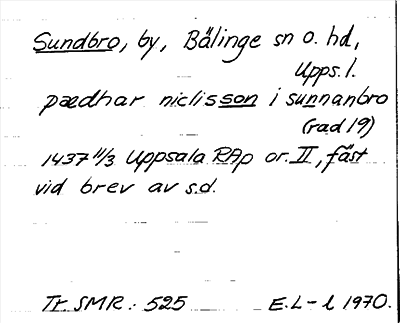 Sundbro, by, Bälinge sn o. hd,
Upps. l.
pædhar niclisson i sunnanbro
(rad 19)
1437 11/3 Uppsala RAp or. II, fäst
vid brev av s.d.
Tr. SMR: 525 E.L-l 1970.